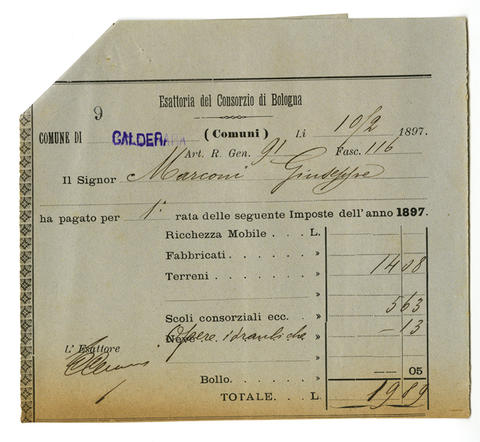 9
Esattoria del Consorzio di Bologna
COMUNE DI CALDERARA (Comuni) Li 10/2 1897.
Art. R. Gen. 91 Fasc. 116
Il Signor Marconi Giuseppe
ha pagato per 1ª rata delle seguente Imposte dell'anno 1897.
Ricchezza Mobile . . . L.
Fabbricati . . . . . . »
Terreni . . . . . . . » 14 08
Scoli consorziali ecc. . » 5 63
Opere idrauliche » — 13
L' Esattore
» — 05
Bollo . . . »
TOTALE . . L. 19 89